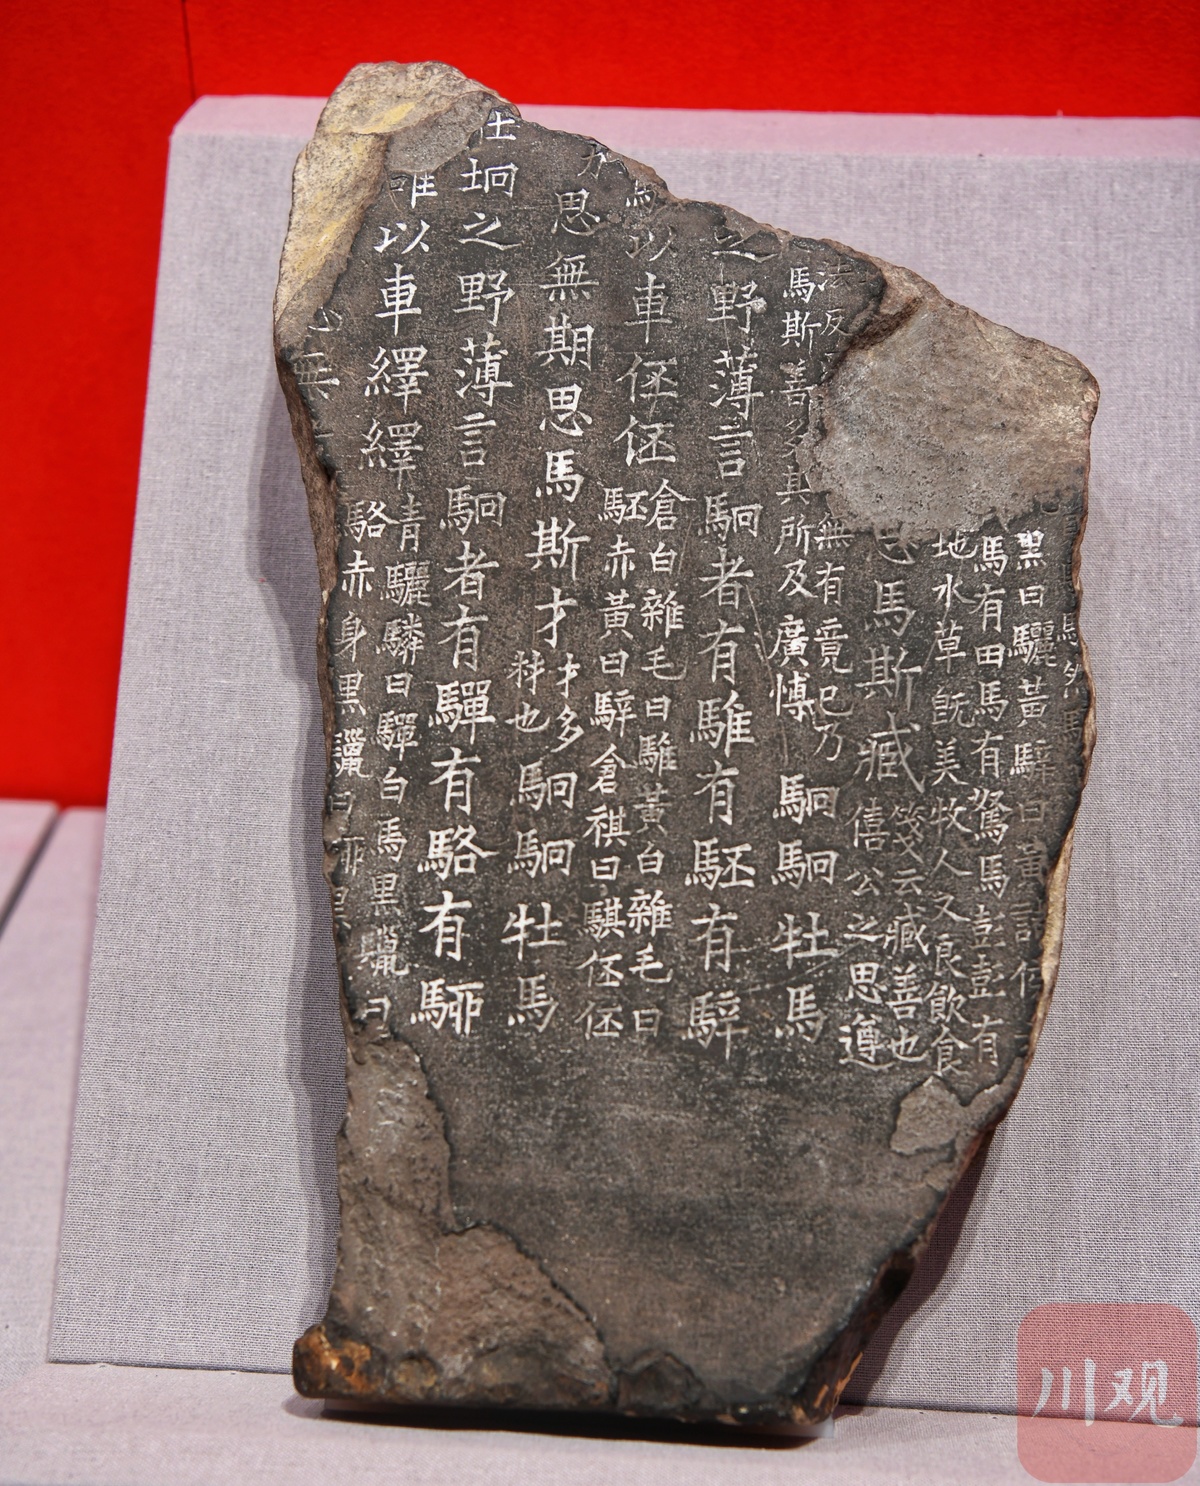 黑曰驪黃騂曰黃
馬有田馬有駑馬彭彭有
地水草既美牧人又良飲食
思馬斯臧
箋云臧善也
僖公之思遵
無有竟已乃
馬斯善多其所及廣愽
駉駉牡馬
之野薄言駉者有騅有駓有騂
以車伾伾
倉白雜毛曰騅黃白雜毛曰
駓赤黃曰騂倉祺曰騏伾伾
思無期思馬斯才
才多
材也
駉駉牡馬
在坰之野薄言駉者有驒有駱有駵
雒以車繹繹
青驪驎曰驒白馬黑鬣曰
駱赤身黑鬣曰駵黑
無
川观